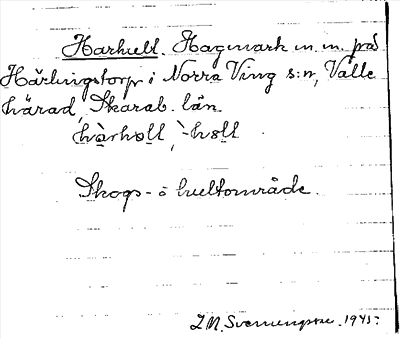 Harhult. Hagmark m.m. på
Härlingstorp i Norra Ving s:n, Valle
härad, Skarab. län.
hàrhʊlt, `-hʊlt
Skogs- o hultområde.
Svenningsson. 1945.